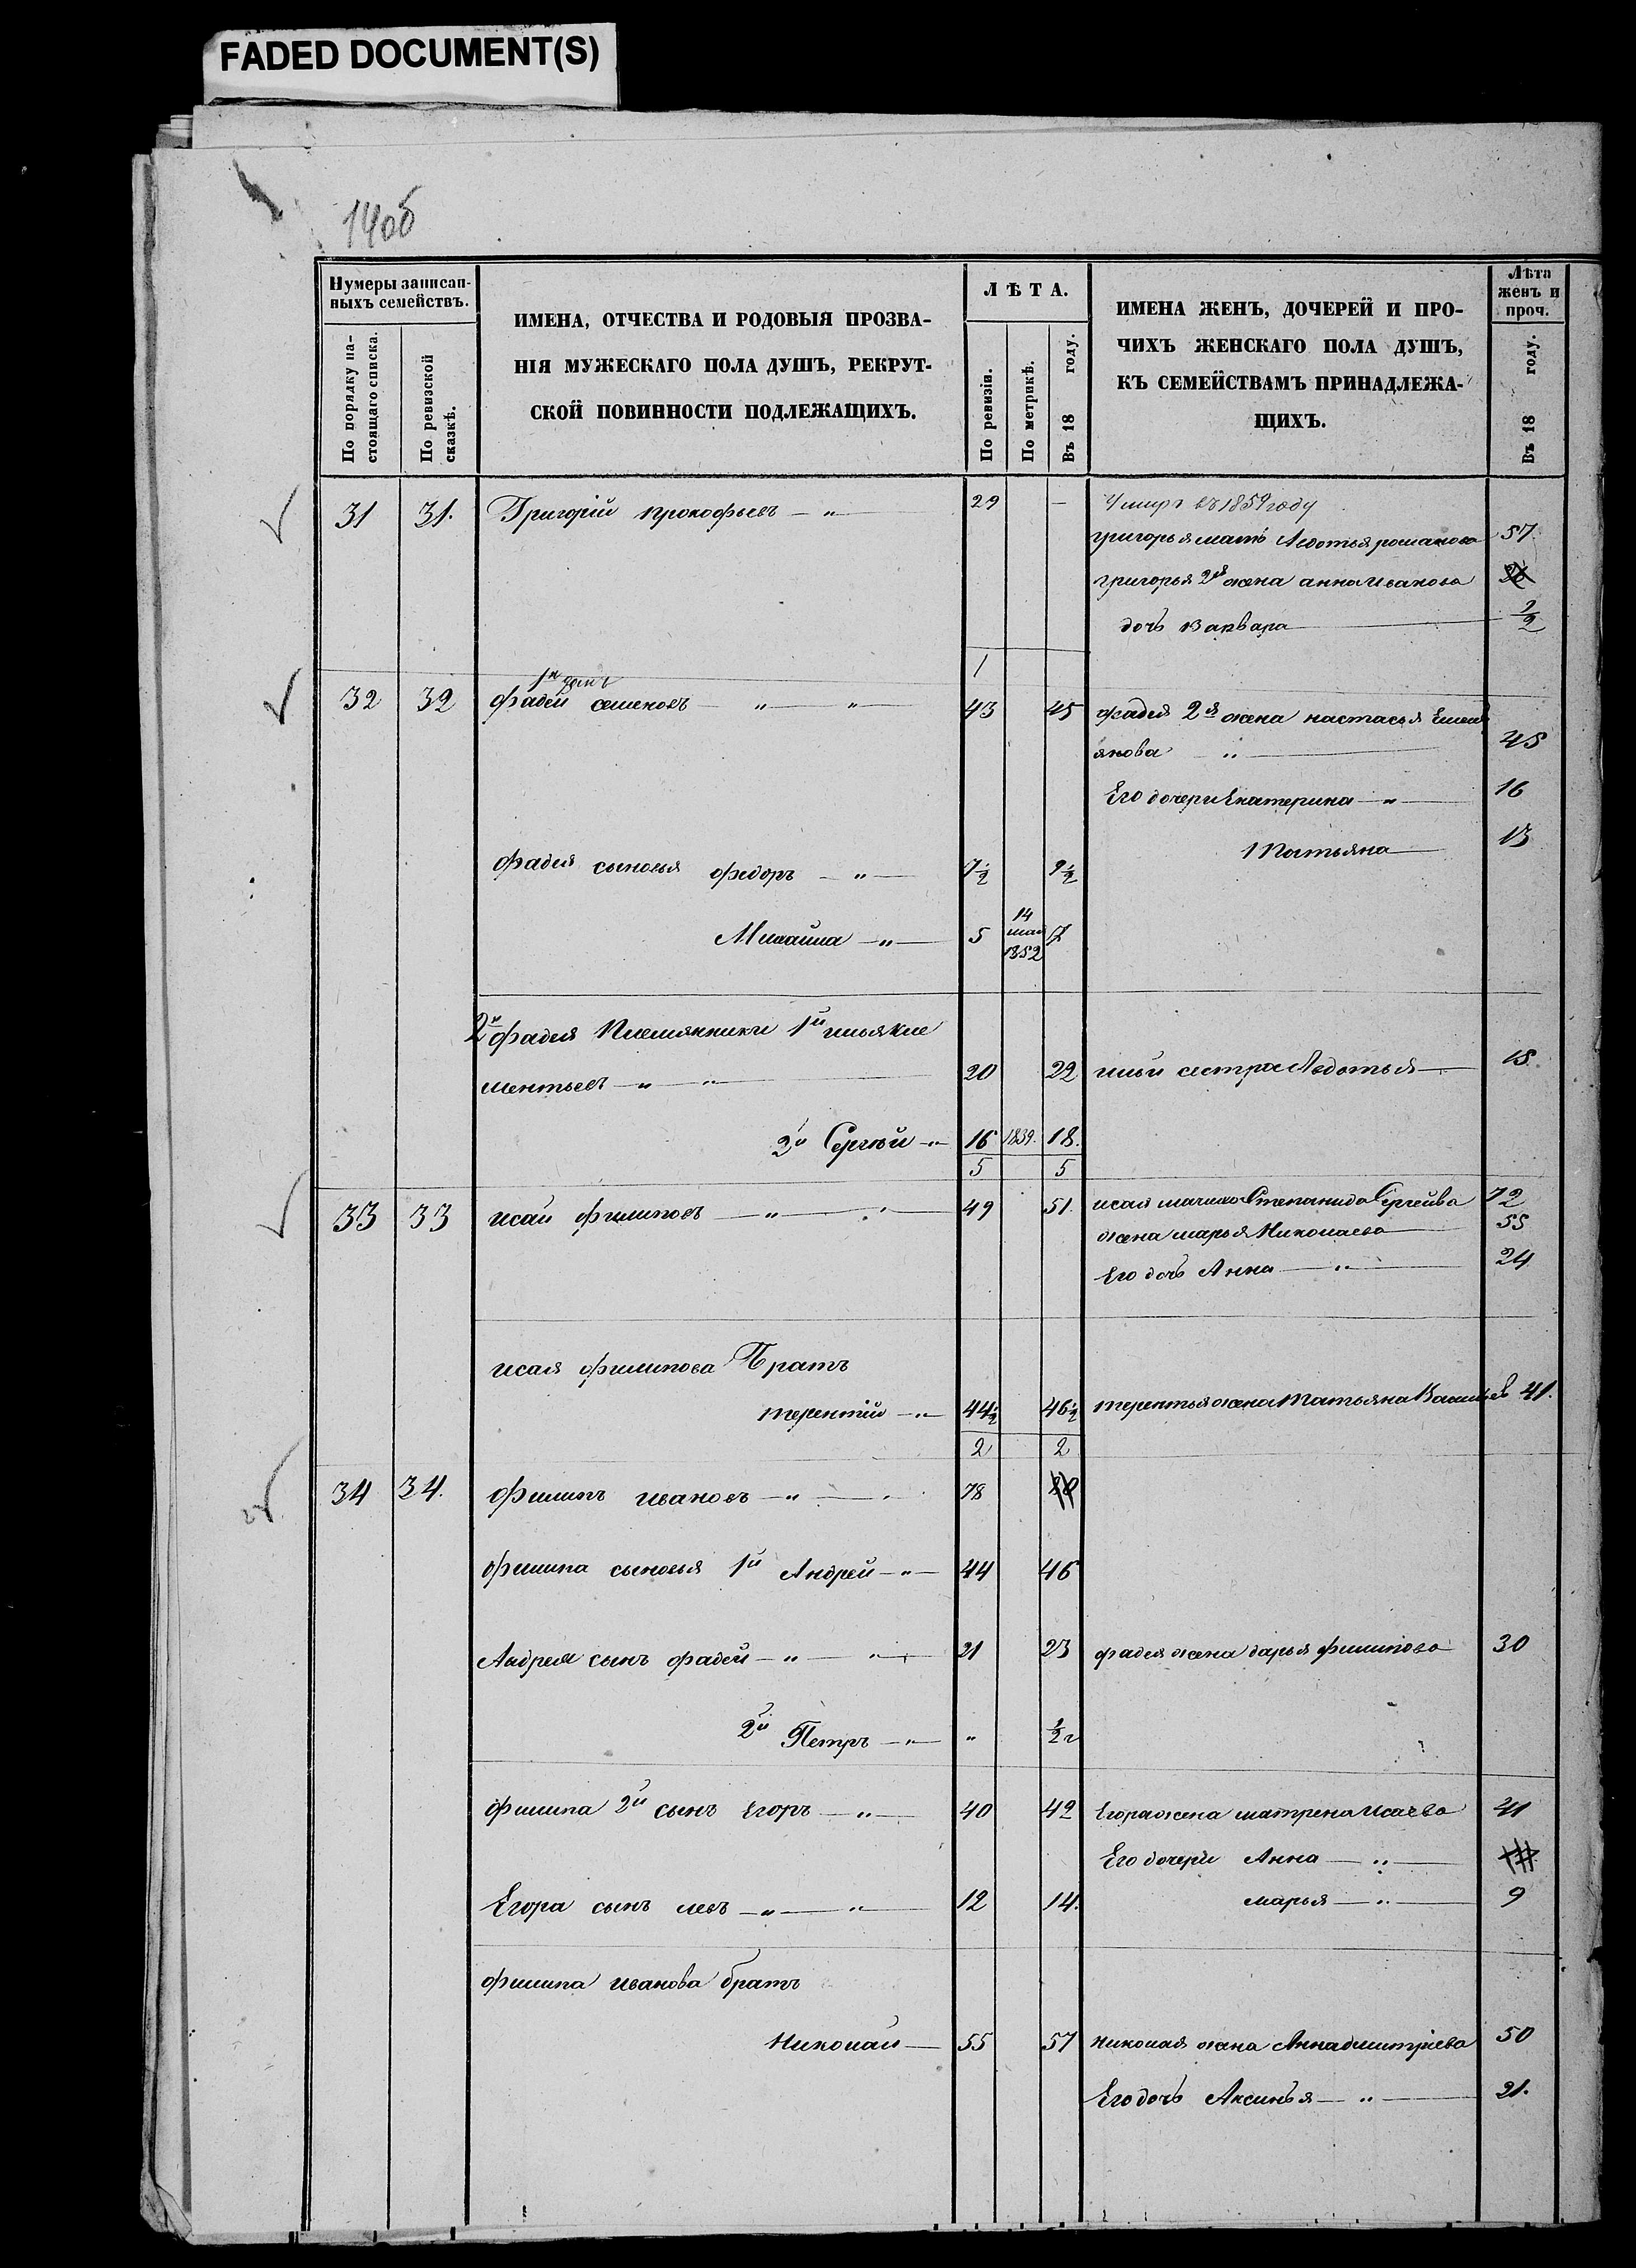 FADED DOCUMENT(S)
14об
Нумеры записан-
ныхъ семействъ.
По порядку на-
стоящаго списка.
По ревизской
сказкѣ.
ИМЕНА, ОТЧЕСТВА И РОДОВЫЯ ПРОЗВА-
НІЯ МУЖЕСКАГО ПОЛА ДУШЪ, РЕКРУТ-
СКОЙ ПОВИННОСТИ ПОДЛЕЖАЩИХЪ.
ЛѢТА.
По ревизіи.
По метрикѣ.
Въ 18 году.
ИМЕНА ЖЕНЪ, ДОЧЕРЕЙ И ПРО-
ЧИХЪ ЖЕНСКАГО ПОЛА ДУШЪ,
КЪ СЕМЕЙСТВАМЪ ПРИНАДЛЕЖА-
ЩИХЪ.
Лѣта
женъ и
проч.
Въ 18 году.
31 31. Григорій прокофьевъ — „ — 29 — Умиръ въ 1859 году
григорья мать Авдотья романова 57.
григорья 2я жена анна иванова
дочь варвара — 1/2
1
32 32 фадей семеновъ — „ — „ — 43 45 фадея 2я жена настасья Емель
янова „ — 45
Его дочери Екатерина — „ — 16
татьяна — 13
фадея сыновья федоръ — „ — 7 1/2 9 1/2
Михайла — „ — 5 14 мая 1852 7
2й фадея племянники 1й илья кле
ментьевъ — „ — „ — 20 22 ильи сестра Авдотья — 15.
2й Сергѣй — „ 16 1839. 18.
5 5
33 33 исай филиповъ — „ — „ — 49 51. исая мачиха Степанида Сергейва 72
жена марья Николаева — 55
Его дочь Анна — „ — 24
исая филипова братъ
терентій — „ 44 1/2 46 1/2 терентья жена татьяна Васильев 41.
2 2
34 34. филипъ ивановъ — „ — 78 80
филипа сыновья 1й Андрей — „ — 44 46
Андрея сынъ фадей — „ — „ — 21 23 фадея жена дарья филипова 30
2й Петръ — „ — „ 1/2 г
филипа 2й сынъ Егоръ — „ — 40 42 Егора жена матрена исаева 41
Его дочери Анна — „ —
Егора сынъ левъ — „ — „ — 12 14. марья — „ — 9
филипа иванова братъ
Николай — 55 57 николая жена Анна дмитріева 50
Его дочь Аксинья — „ — 21.